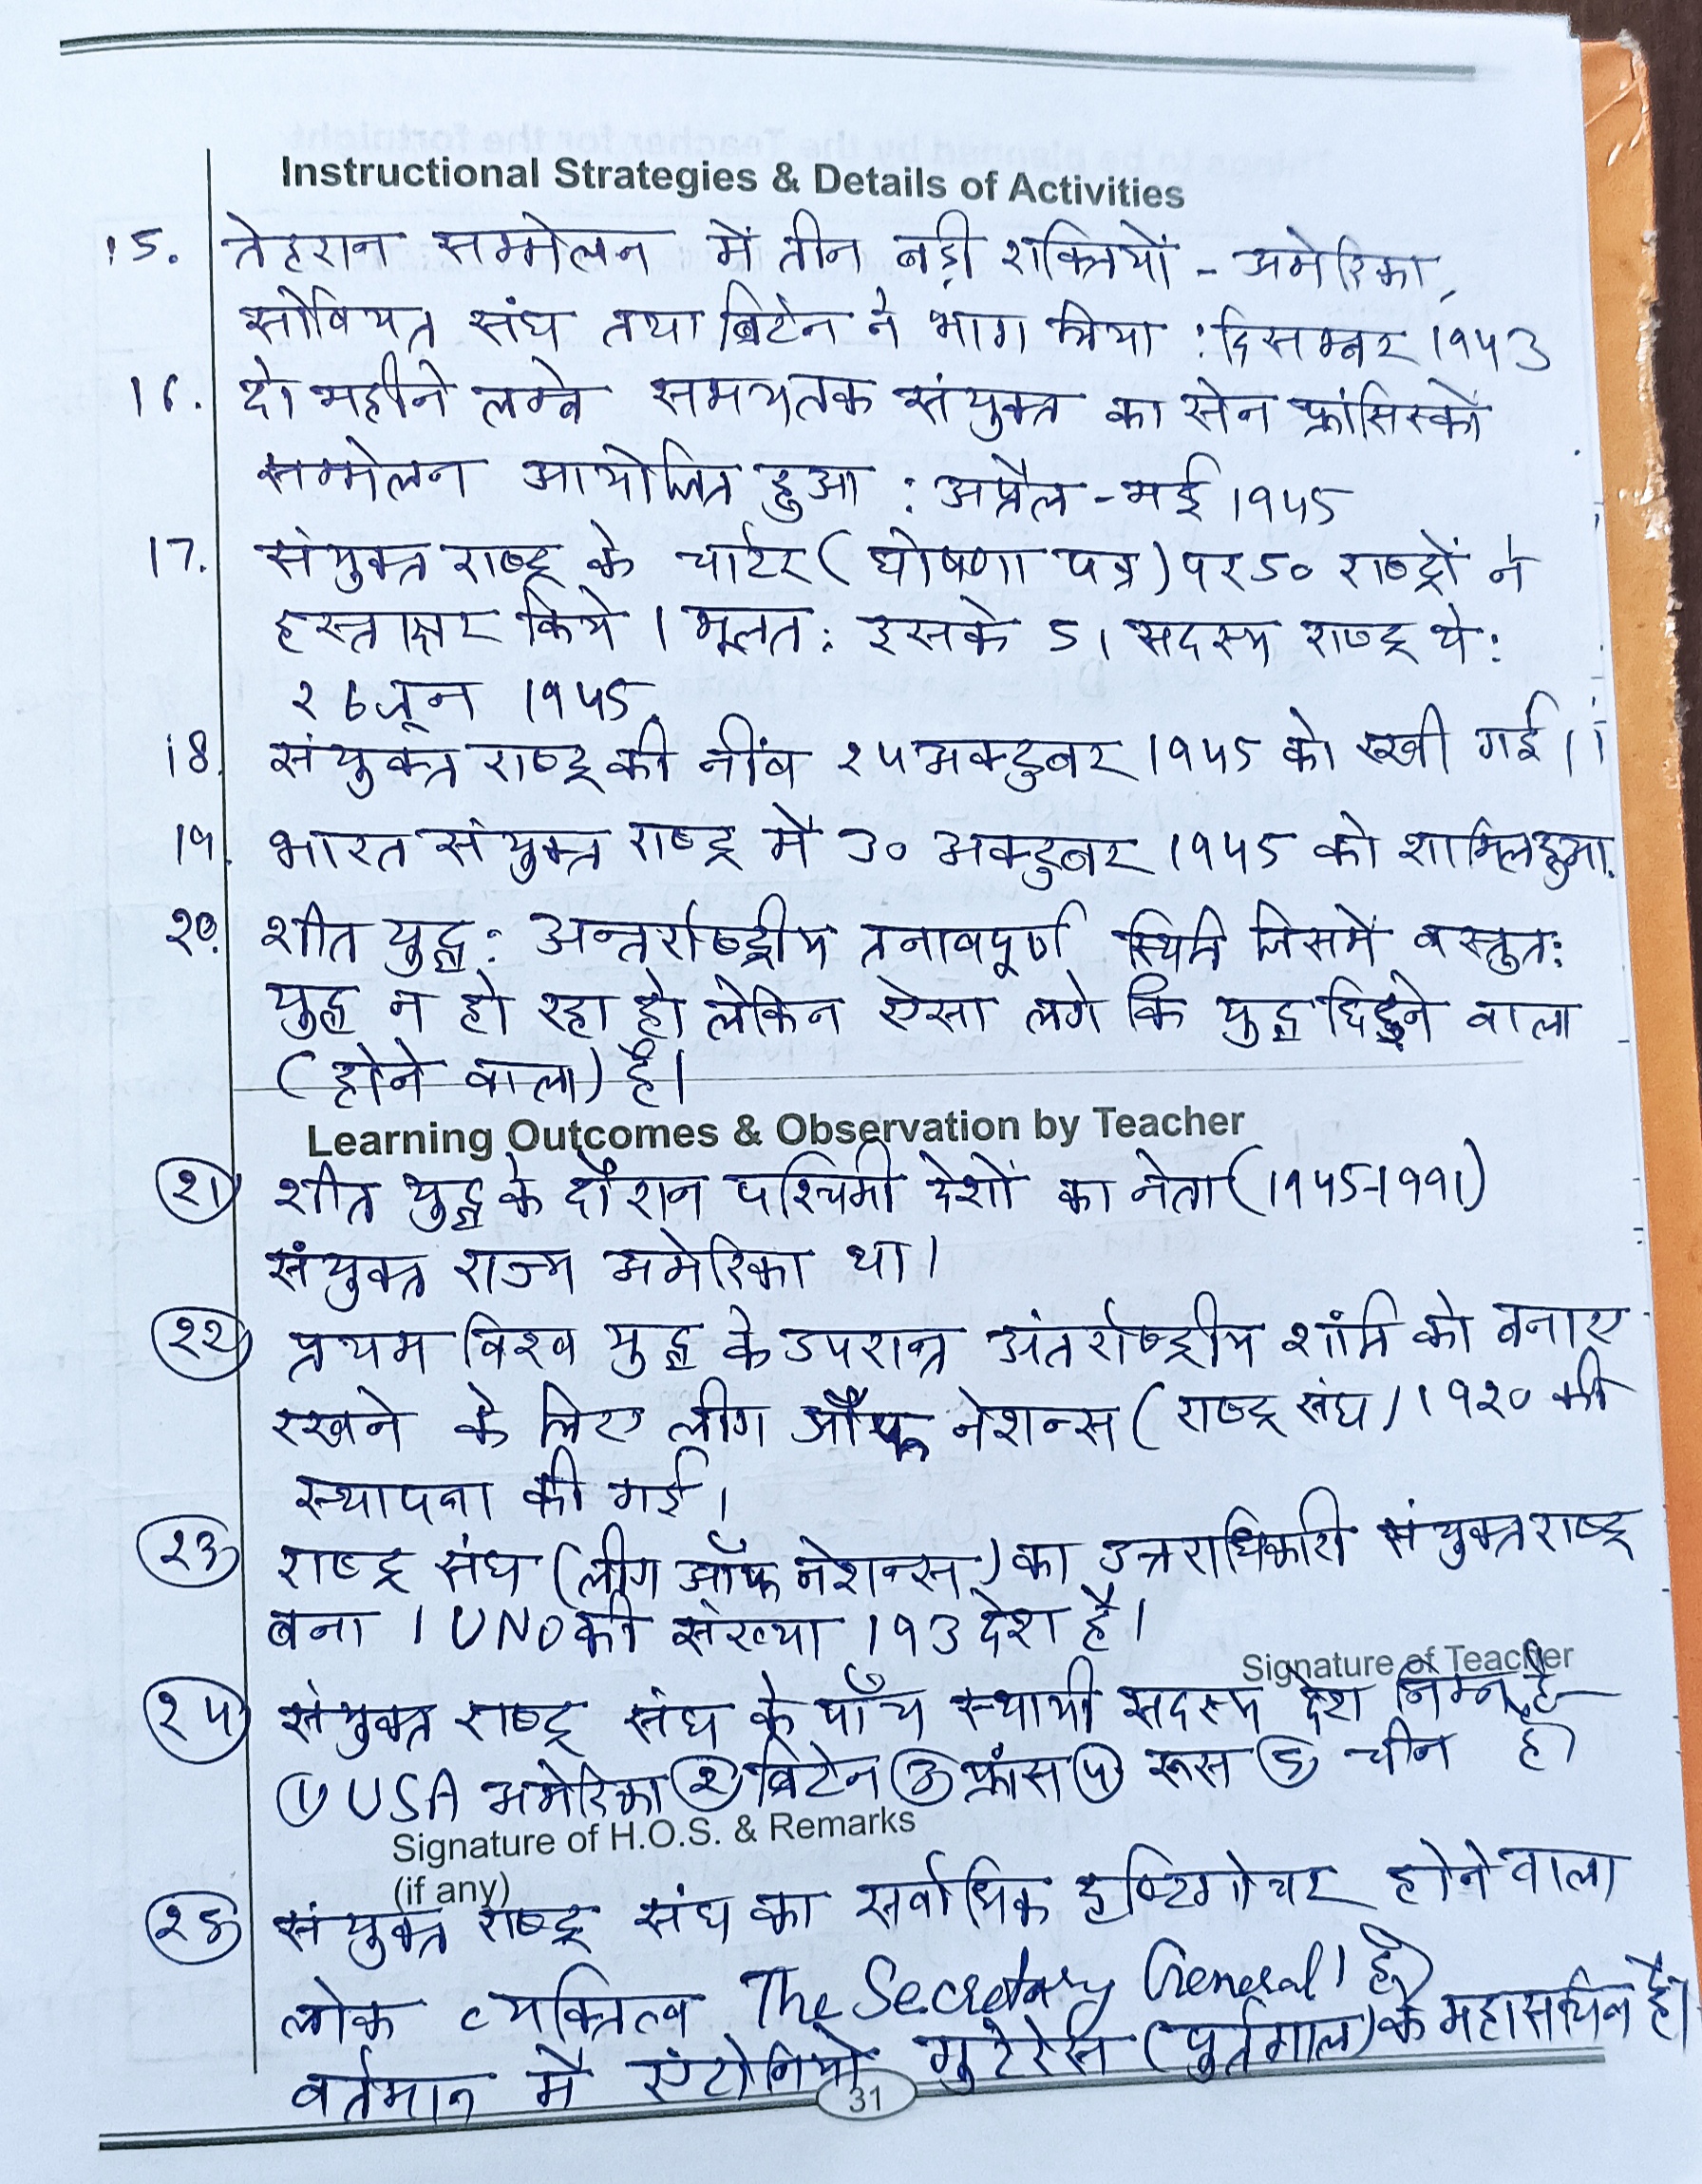 Instructional Strategies & Details of Activities
15. तेहरान सम्मेलन में तीन बड़ी शक्तियों - अमेरिका,
सोवियत संघ तथा ब्रिटेन ने भाग लिया : दिसम्बर 1943
16. दो महीने लम्बे समय तक संयुक्त का सेन फ्रांसिस्को
सम्मेलन आयोजित हुआ : अप्रैल - मई 1945
17. संयुक्त राष्ट्र के चार्टर ( घोषणा पत्र ) पर 50 राष्ट्रों ने
हस्ताक्षर किये । मूलत: इसके 51 सदस्य राष्ट्र थे :
26 जून 1945.
18. संयुक्त राष्ट्र की नींव 24 अक्टुबर 1945 को रखी गई ।
19. भारत संयुक्त राष्ट्र में 30 अक्टुबर 1945 को शामिल हुआ.
20. शीत युद्ध : अन्तर्राष्ट्रीय तनावपूर्ण स्थिति जिसमें वस्तुत:
युद्ध न हो रहा हो लेकिन ऐसा लगे कि युद्ध छिड़ने वाला
( होने वाला ) है।
Learning Outcomes & Observation by Teacher
21 शीत युद्ध के दौरान पश्चिमी देशों का नेता (1945-1991)
संयुक्त राज्य अमेरिका था।
22 प्रथम विश्व युद्ध के उपरान्त अंतर्राष्ट्रीय शांति को बनाए
रखने के लिए लीग ऑफ नेशन्स ( राष्ट्र संघ ) 1920 की
स्थापना की गई।
23 राष्ट्र संघ (लीग ऑफ नेशन्स) का उत्तराधिकारी संयुक्त राष्ट्र
बना । UNO की संख्या 193 देश है।
Signature of Teacher
24 संयुक्त राष्ट्र संघ के पाँच स्थायी सदस्य देश निम्न है -
① USA अमेरिका ② ब्रिटेन ③ फ्रांस ④ रूस ⑤ चीन है।
Signature of H.O.S. & Remarks
(if any)
25 संयुक्त राष्ट्र संघ का सर्वाधिक दृष्टिगोचर होने वाला
लोक व्यक्तित्व The Secretary General है।
वर्तमान में एंटोनियो गुटेरेस (पुर्तगाल) के महासचिव है।
31